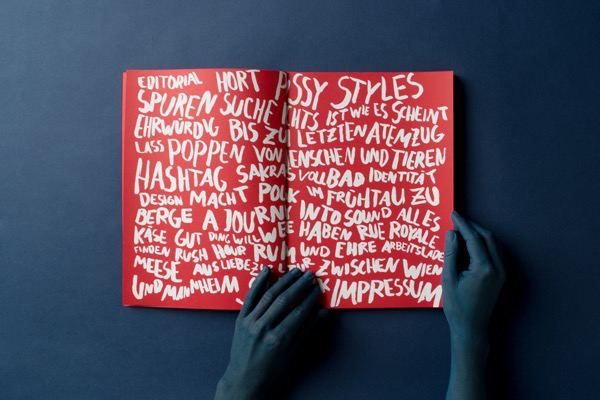 EDITORIAL HORT PUSSY STYLES
SPUREN SUCHE NICHTS IST WIE ES SCHEINT
EHRWÜRDIG BIS ZUM LETZTEN ATEMZUG
LASS POPPEN VON MENSCHEN UND TIEREN
HASHTAG SAKRAL VOLLBAD IDENTITÄT
DESIGN MACHT IM FRÜHTAU ZU
BERGE A JOURNEY INTO SOUND ALLES
KÄSE GUT DING WILL WEILE HABEN RUE ROYALE
FINDEN RUSH HOUR RUM UND EHRE ARBEITSLADE
MEESE AUS LIEBE ZWISCHEN WIEN
UND MANNHEIM IMPRESSUM